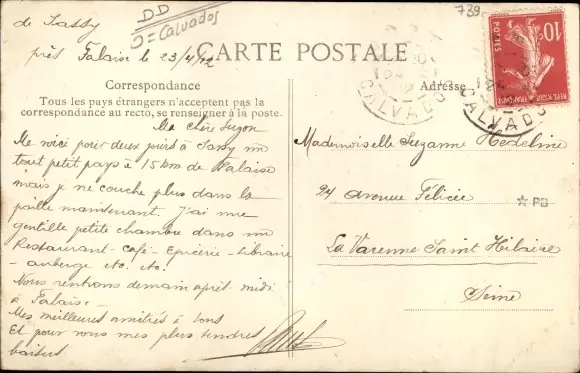 de Sassy
près Falaise le 23/4/12
DD
= Calvados
739
CARTE POSTALE
Correspondance
Tous les pays étrangers n'acceptent pas la
correspondance au recto, se renseigner à la poste.
Adresse
10c
POSTES
REPUBLIQUE FRANÇAISE
CALVADOS
CALVADOS
Ma chère Suzon
Me voici pour deux jours à Sassy un
tout petit pays à 15 km de Falaise
mais je ne couche plus dans la
paille maintenant. J'ai une
gentille petite chambre dans un
Restaurant - Café - Epicerie - Libraire
- auberge etc. etc.
Nous rentrons demain après midi
à Falaise -
Mes meilleures amitiés à tous
Et pour vous mes plus tendres
baisers
Mademoiselle Suzanne Hedeline
24 avenue Félicie
☆ PB
La Varenne Saint Hilaire
Seine